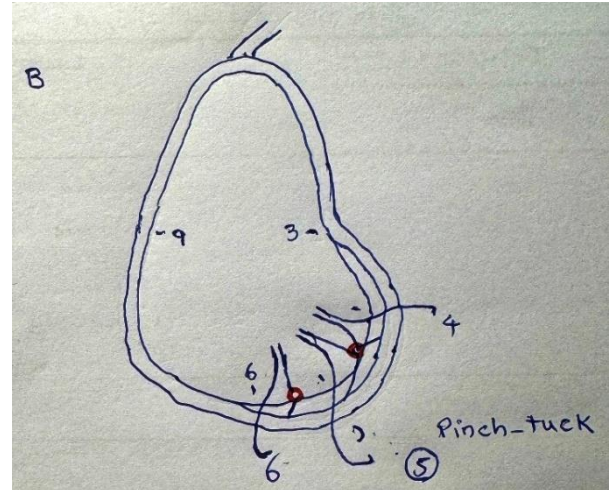 B
9
3
4
6
Pinch-tuck
6
5